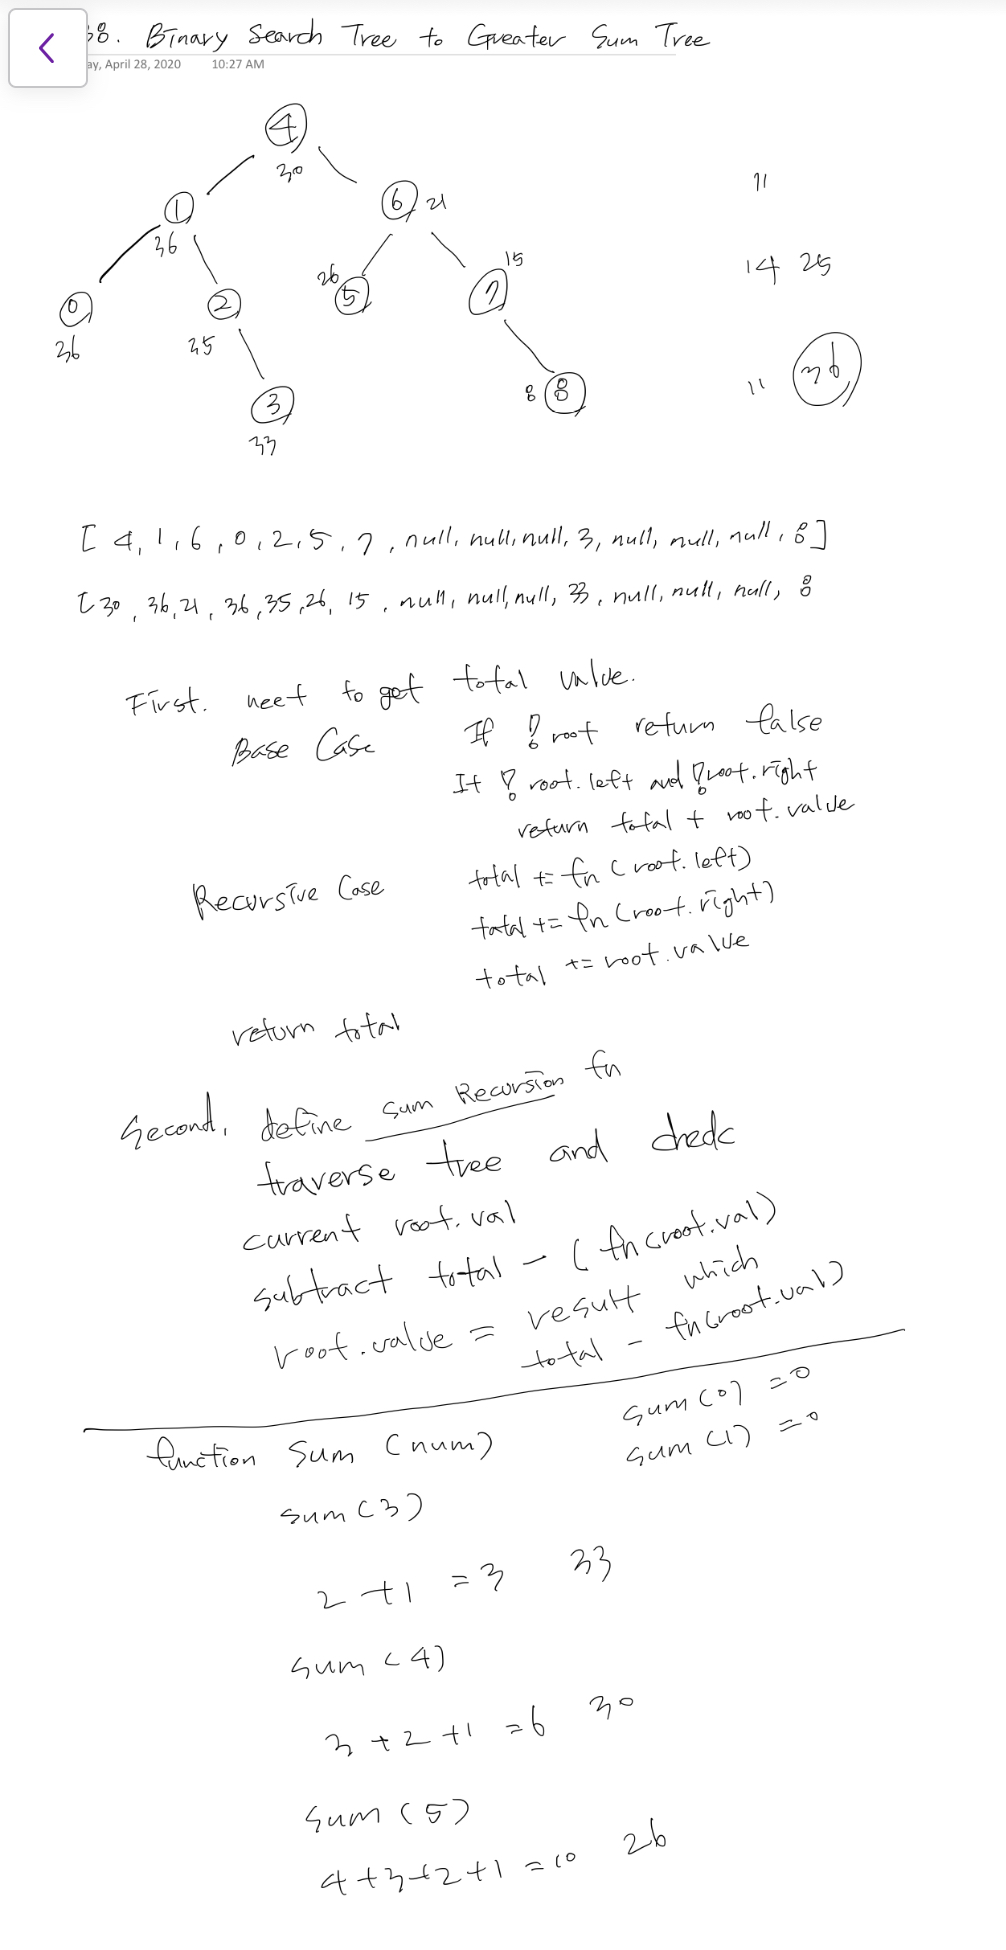 38. Binary Search Tree to Greater Sum Tree
ay, April 28, 2020 10:27 AM
4
30
1
36
6 21
0
36
2
35
26
5
15
7
3
33
8 8
11
14 25
11 36
[ 4, 1, 6, 0, 2, 5, 7, null, null, null, 3, null, null, null, 8 ]
[ 30, 36, 21, 36, 35, 26, 15, null, null, null, 33, null, null, null, 8
First. neet to get total value.
Base Case If ! root return false
If ! root.left and ! root.right
return total + root.value
Recursive Case total += fn (root.left)
total += fn (root.right)
total += root.value
return total
Second, define sum Recursion fn
traverse tree and check
current root.val
subtract total - ( fn(root.val)
root.value = result which
total - fn(root.val)
function sum (num)
sum (0) = 0
sum (1) = 0
sum (3)
2 + 1 = 3 33
sum (4)
3 + 2 + 1 = 6 30
sum (5)
4 + 3 + 2 + 1 = 10 26